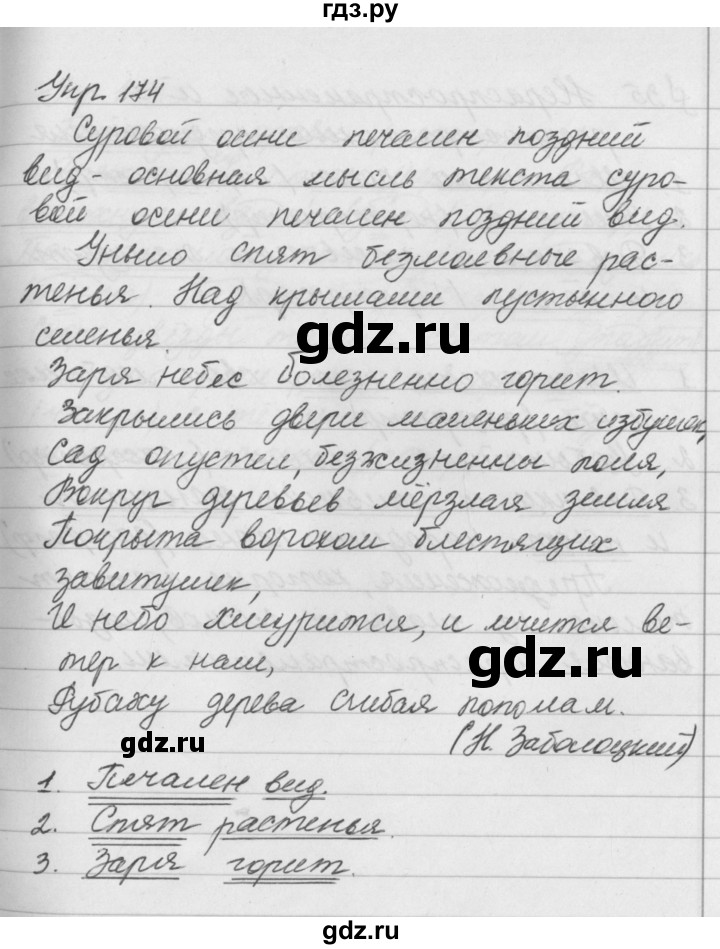 гдз.ру
Упр. 174
Суровой осени печален поздний
вид - основная мысль текста суро-
вой осени печален поздний вид.
Уныло спят безмолвные рас-
тенья. Над крышами пустынного
селенья
gdz.ru
Заря небес болезненно горит.
Закрылись двери маленьких избушек,
Сад опустел, безжизненны поля,
Вокруг деревьев мёрзлая земля
Покрыта ворохом блестящих
завитушек,
И небо хмурится, и мчится ве-
тер к нам,
gdz.ru
Рубаху дерева сгибая пополам.
gdz.ru
(Н. Заболоцкий)
1. Печален вид.
2. Спят растенья.
3. Заря горит.
gdz.ru